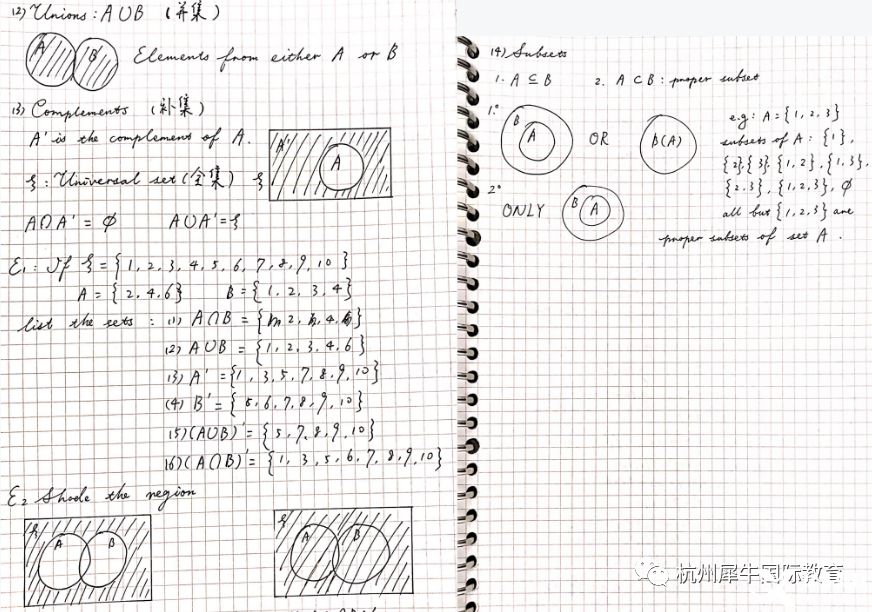 12) Unions: A∪B (并集)
A B Elements from either A or B
13) Complements (补集)
A' is the complement of A.
A' A
ξ: Universal set (全集) ξ
A∩A' = ϕ A∪A' = ξ
E1: If ξ = { 1, 2, 3, 4, 5, 6, 7, 8, 9, 10 }
A = { 2, 4, 6 } B = { 1, 2, 3, 4 }
list the sets: (1) A∩B = { 2, 4 }
(2) A∪B = { 1, 2, 3, 4, 6 }
(3) A' = { 1, 3, 5, 7, 8, 9, 10 }
(4) B' = { 5, 6, 7, 8, 9, 10 }
(5) (A∪B)' = { 5, 7, 8, 9, 10 }
(6) (A∩B)' = { 1, 3, 5, 6, 7, 8, 9, 10 }
E2 Shade the region
ξ A B
ξ A B
14) Subsets
1. A ⊆ B 2. A ⊂ B: proper subset
1° B A OR B(A)
e.g: A = { 1, 2, 3 }
subsets of A: {1},
{2}, {3}, {1, 2}, {1, 3},
{2, 3}, {1, 2, 3}, ϕ
2° ONLY B A
all but {1, 2, 3} are
proper subsets of set A.
杭州犀牛国际教育